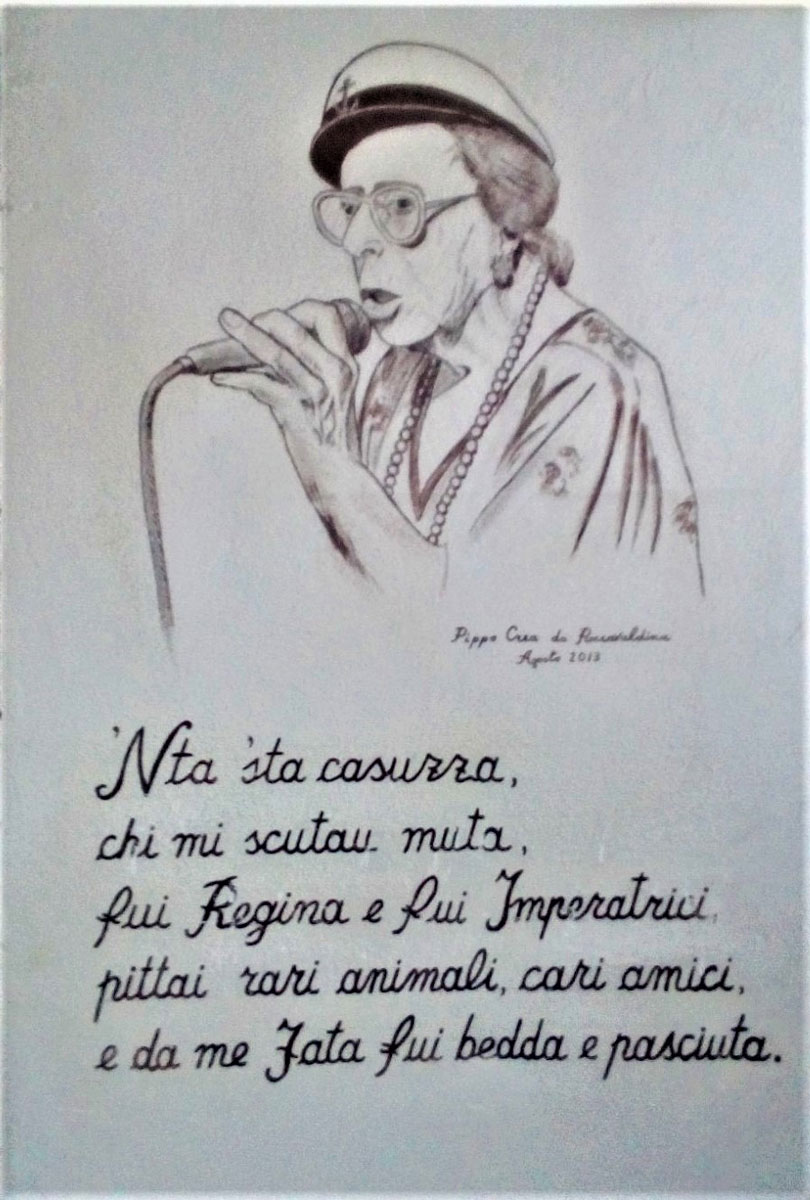 Pippo Crea da Roccavaldina
Agosto 2013
'Nta 'sta casuzza,
chi mi scutau muta,
fui Regina e fui Imperatrici,
pittai rari animali, cari amici,
e da me Fata fui bedda e pasciuta.